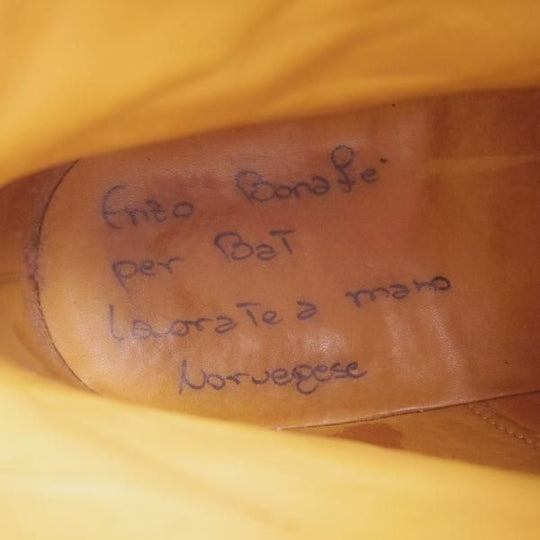 Enzo Bonafè
per BaT
lavorate a mano
Norvegese